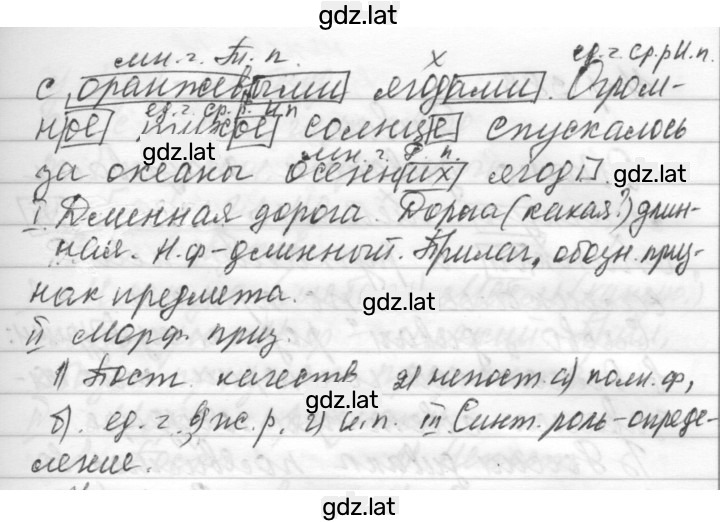 gdz.lat
мн.ч. Т.п. х ед.ч. ср.р И.п.
с оранжевыми ягодами. Огром-
ед.ч. ср.р. И.п
ное низкое солнце спускалось
gdz.lat
мн.ч. Р. п.
за океаны осенних ягод. gdz.lat
I Длинная дорога. Дорога (какая?) длин-
ная. Н.ф - длинный. Прилаг., обозн. приз-
нак предмета. gdz.lat
II морф. приз.
1) Пост. качеств 2) непост. а) полн. ф,
gdz.lat
б). ед. ч. в) ж. р. г) И.п. III Синт. роль - опреде-
ление.
gdz.lat